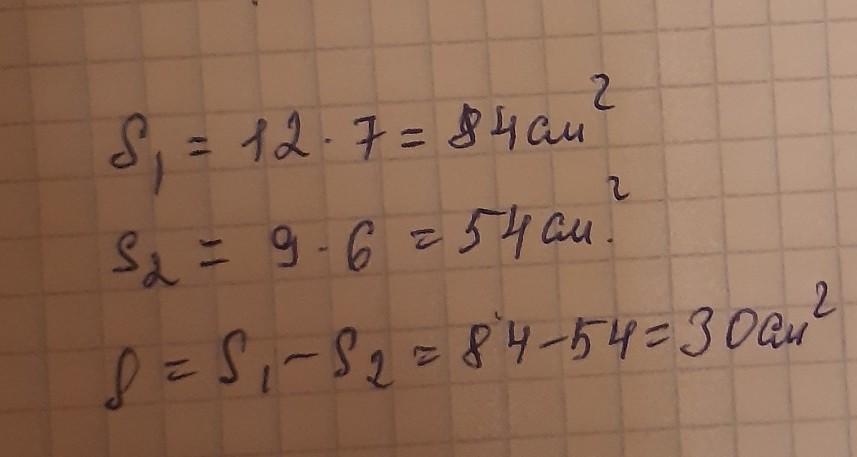 S₁ = 12 · 7 = 84 см²
S₂ = 9 · 6 = 54 см.²
S = S₁ – S₂ = 84 – 54 = 30 см²